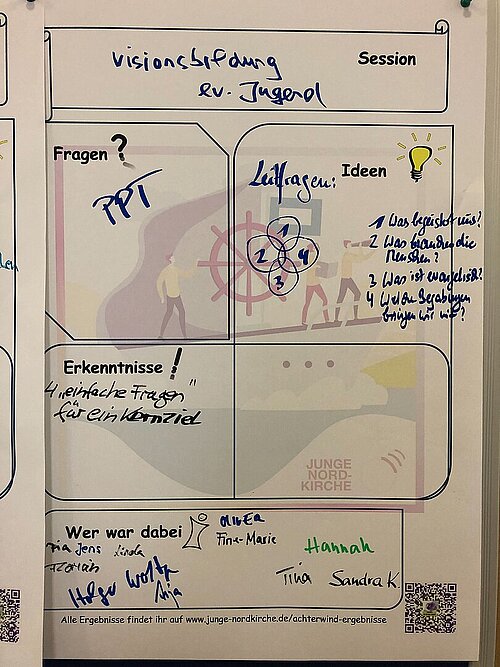 Session
Visionsbildung
ev. Jugend
Fragen ?
PPT
Ideen
Leitfragen:
1
2 4
3
1 Was begeistert uns?
2 Was brauchen die
Menschen?
3 Was ist evangelisch?
4 Welche Begabungen
bringen wir mit?
Erkenntnisse !
4 „einfache Fragen"
für ein Kernziel
JUNGE
NORD-
KIRCHE
Wer war dabei
Oliver
Pia Jens Linda
Fine-Marie
Hannah
Florian
Holger Woltz
Anja
Tina Sandra K
Alle Ergebnisse findet ihr auf www.junge-nordkirche.de/achterwind-ergebnisse